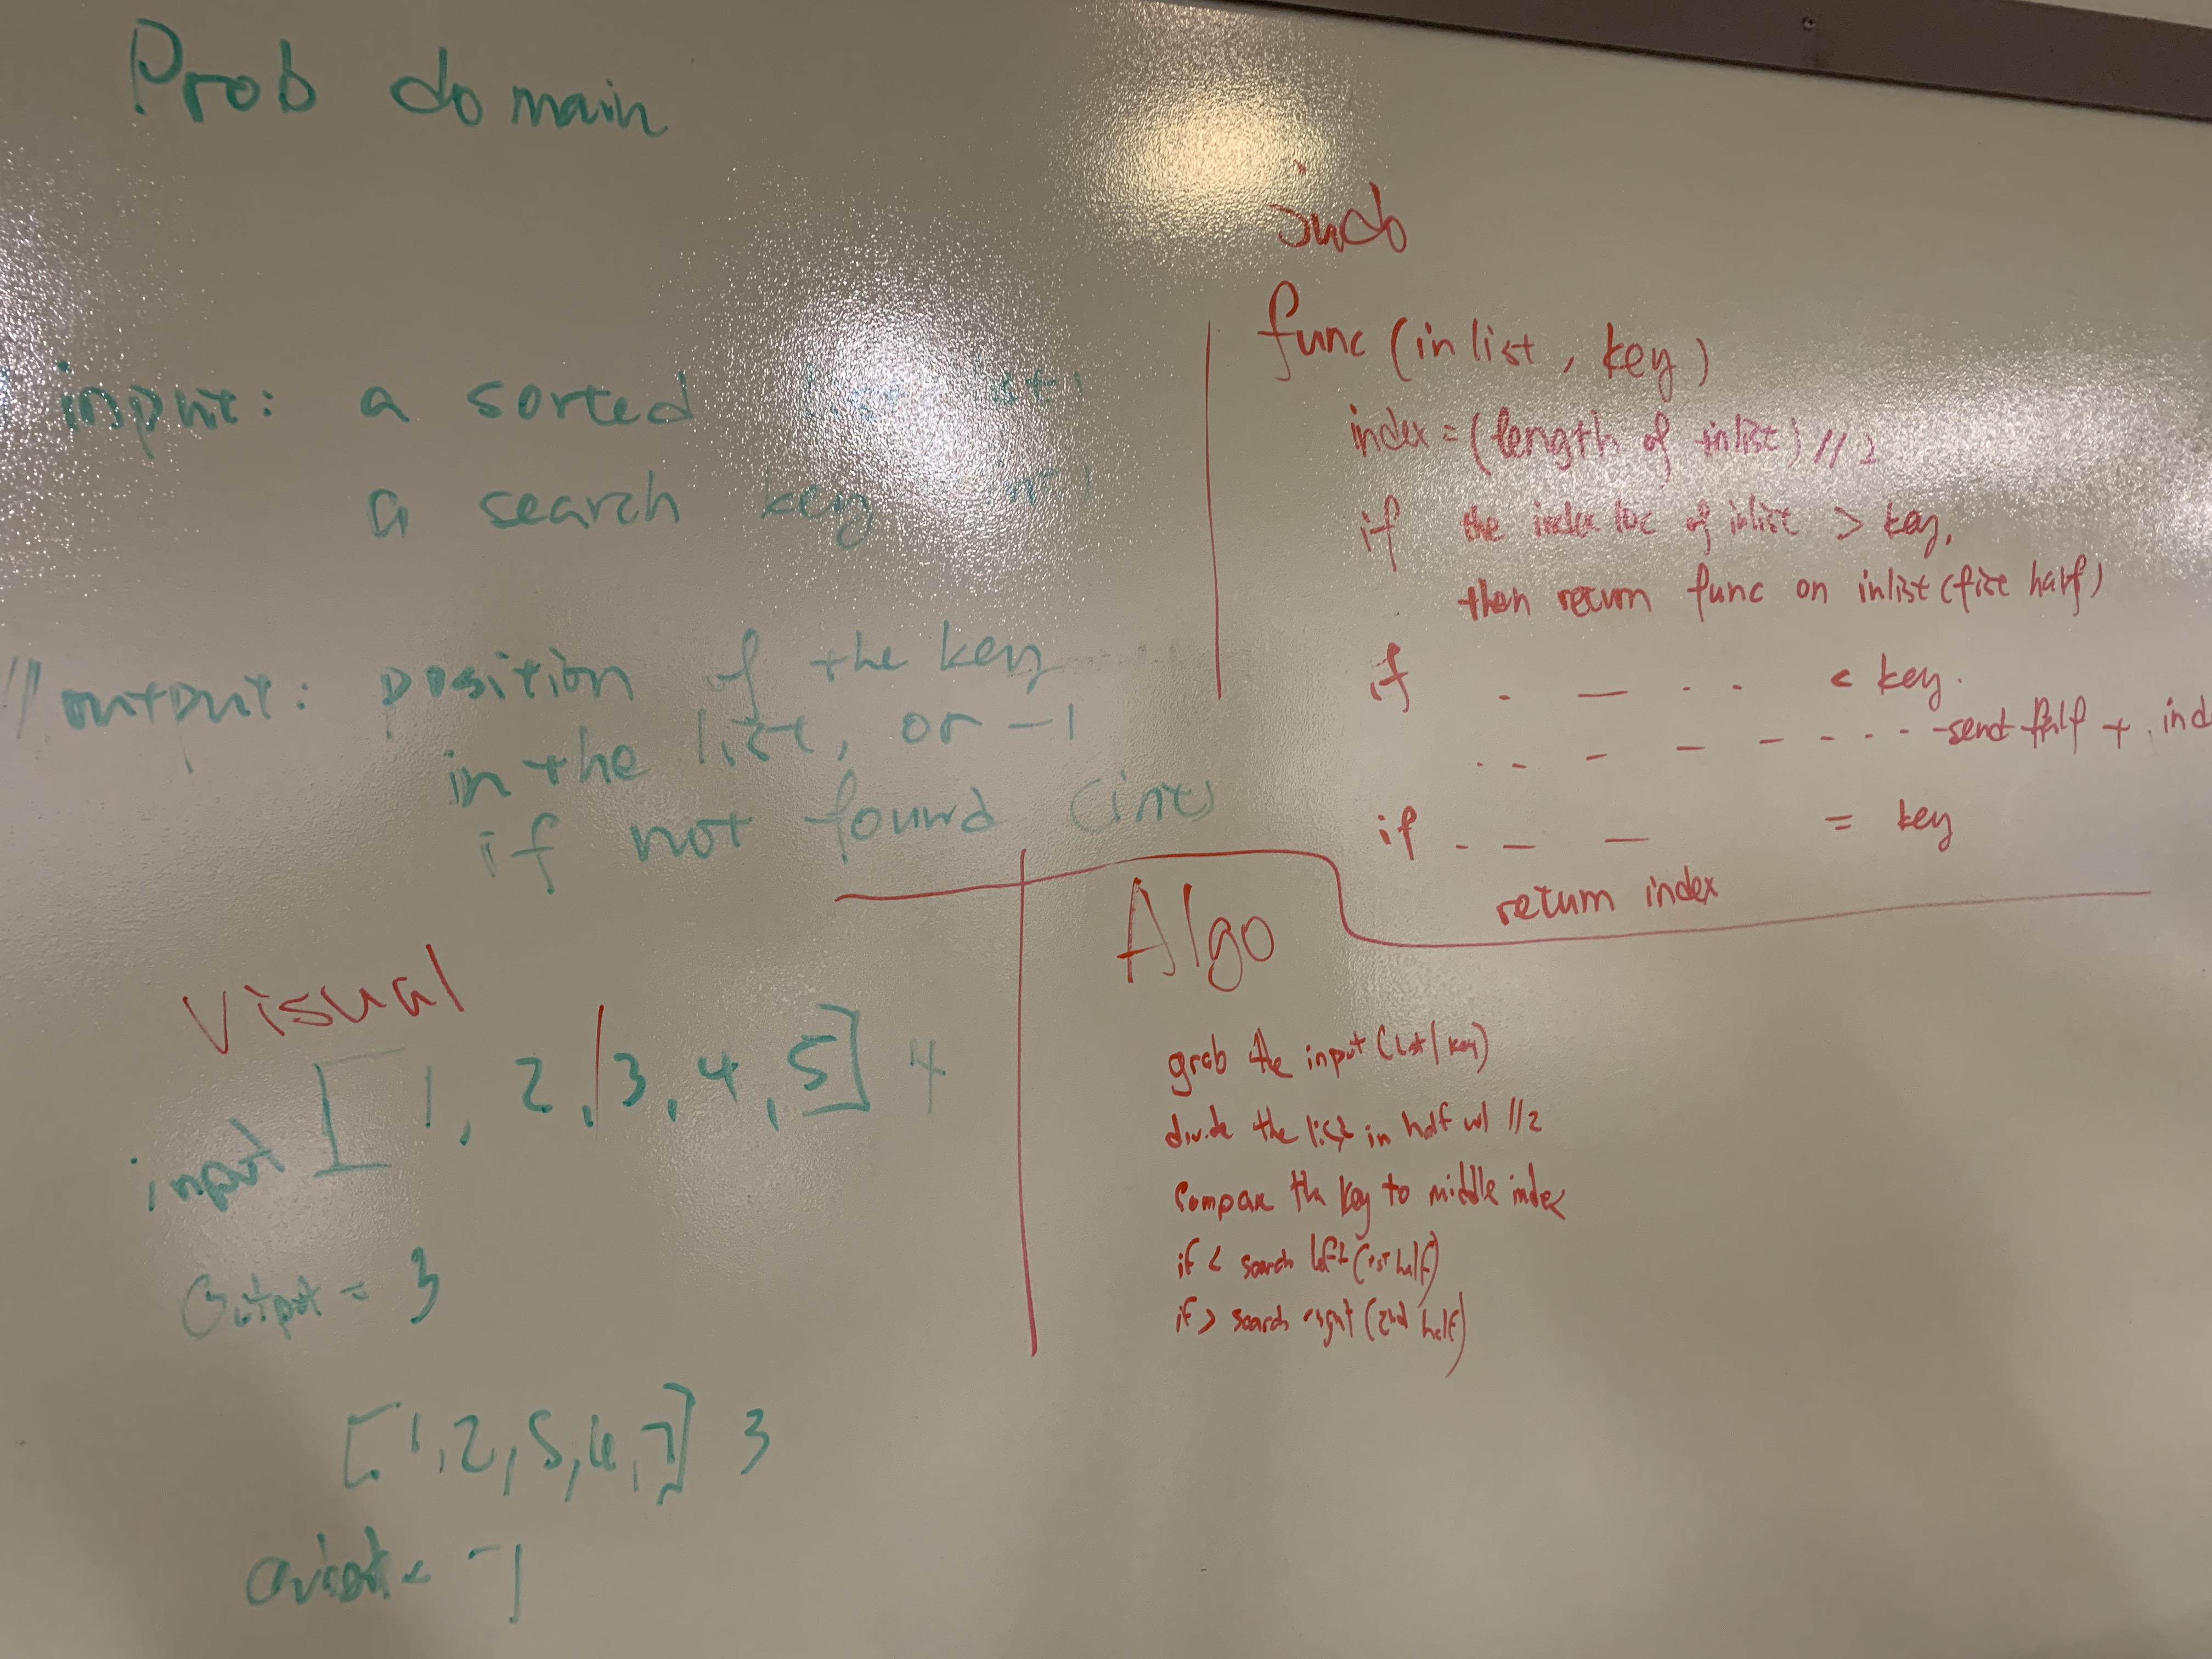 Prob domain
input: a sorted
a search key
// output: position of the key
in the list, or -1
if not found (int)
judo
func (inlist, key)
index = (length of inlist) // 2
if the index loc of inlist > key,
then return func on inlist (fist half)
if . — . . < key.
. . - — — — - . . . send half + ind
if - — — = key
return index
Visual
input [1, 2, | 3, 4, 5] 4
Output = 3
[1, 2, 5, 6, 7] 3
= -1
Algo
grab the input (list / key)
divide the list in half w/ //2
Compare the key to middle index
if < search left (1st half)
if > search right (2nd half)